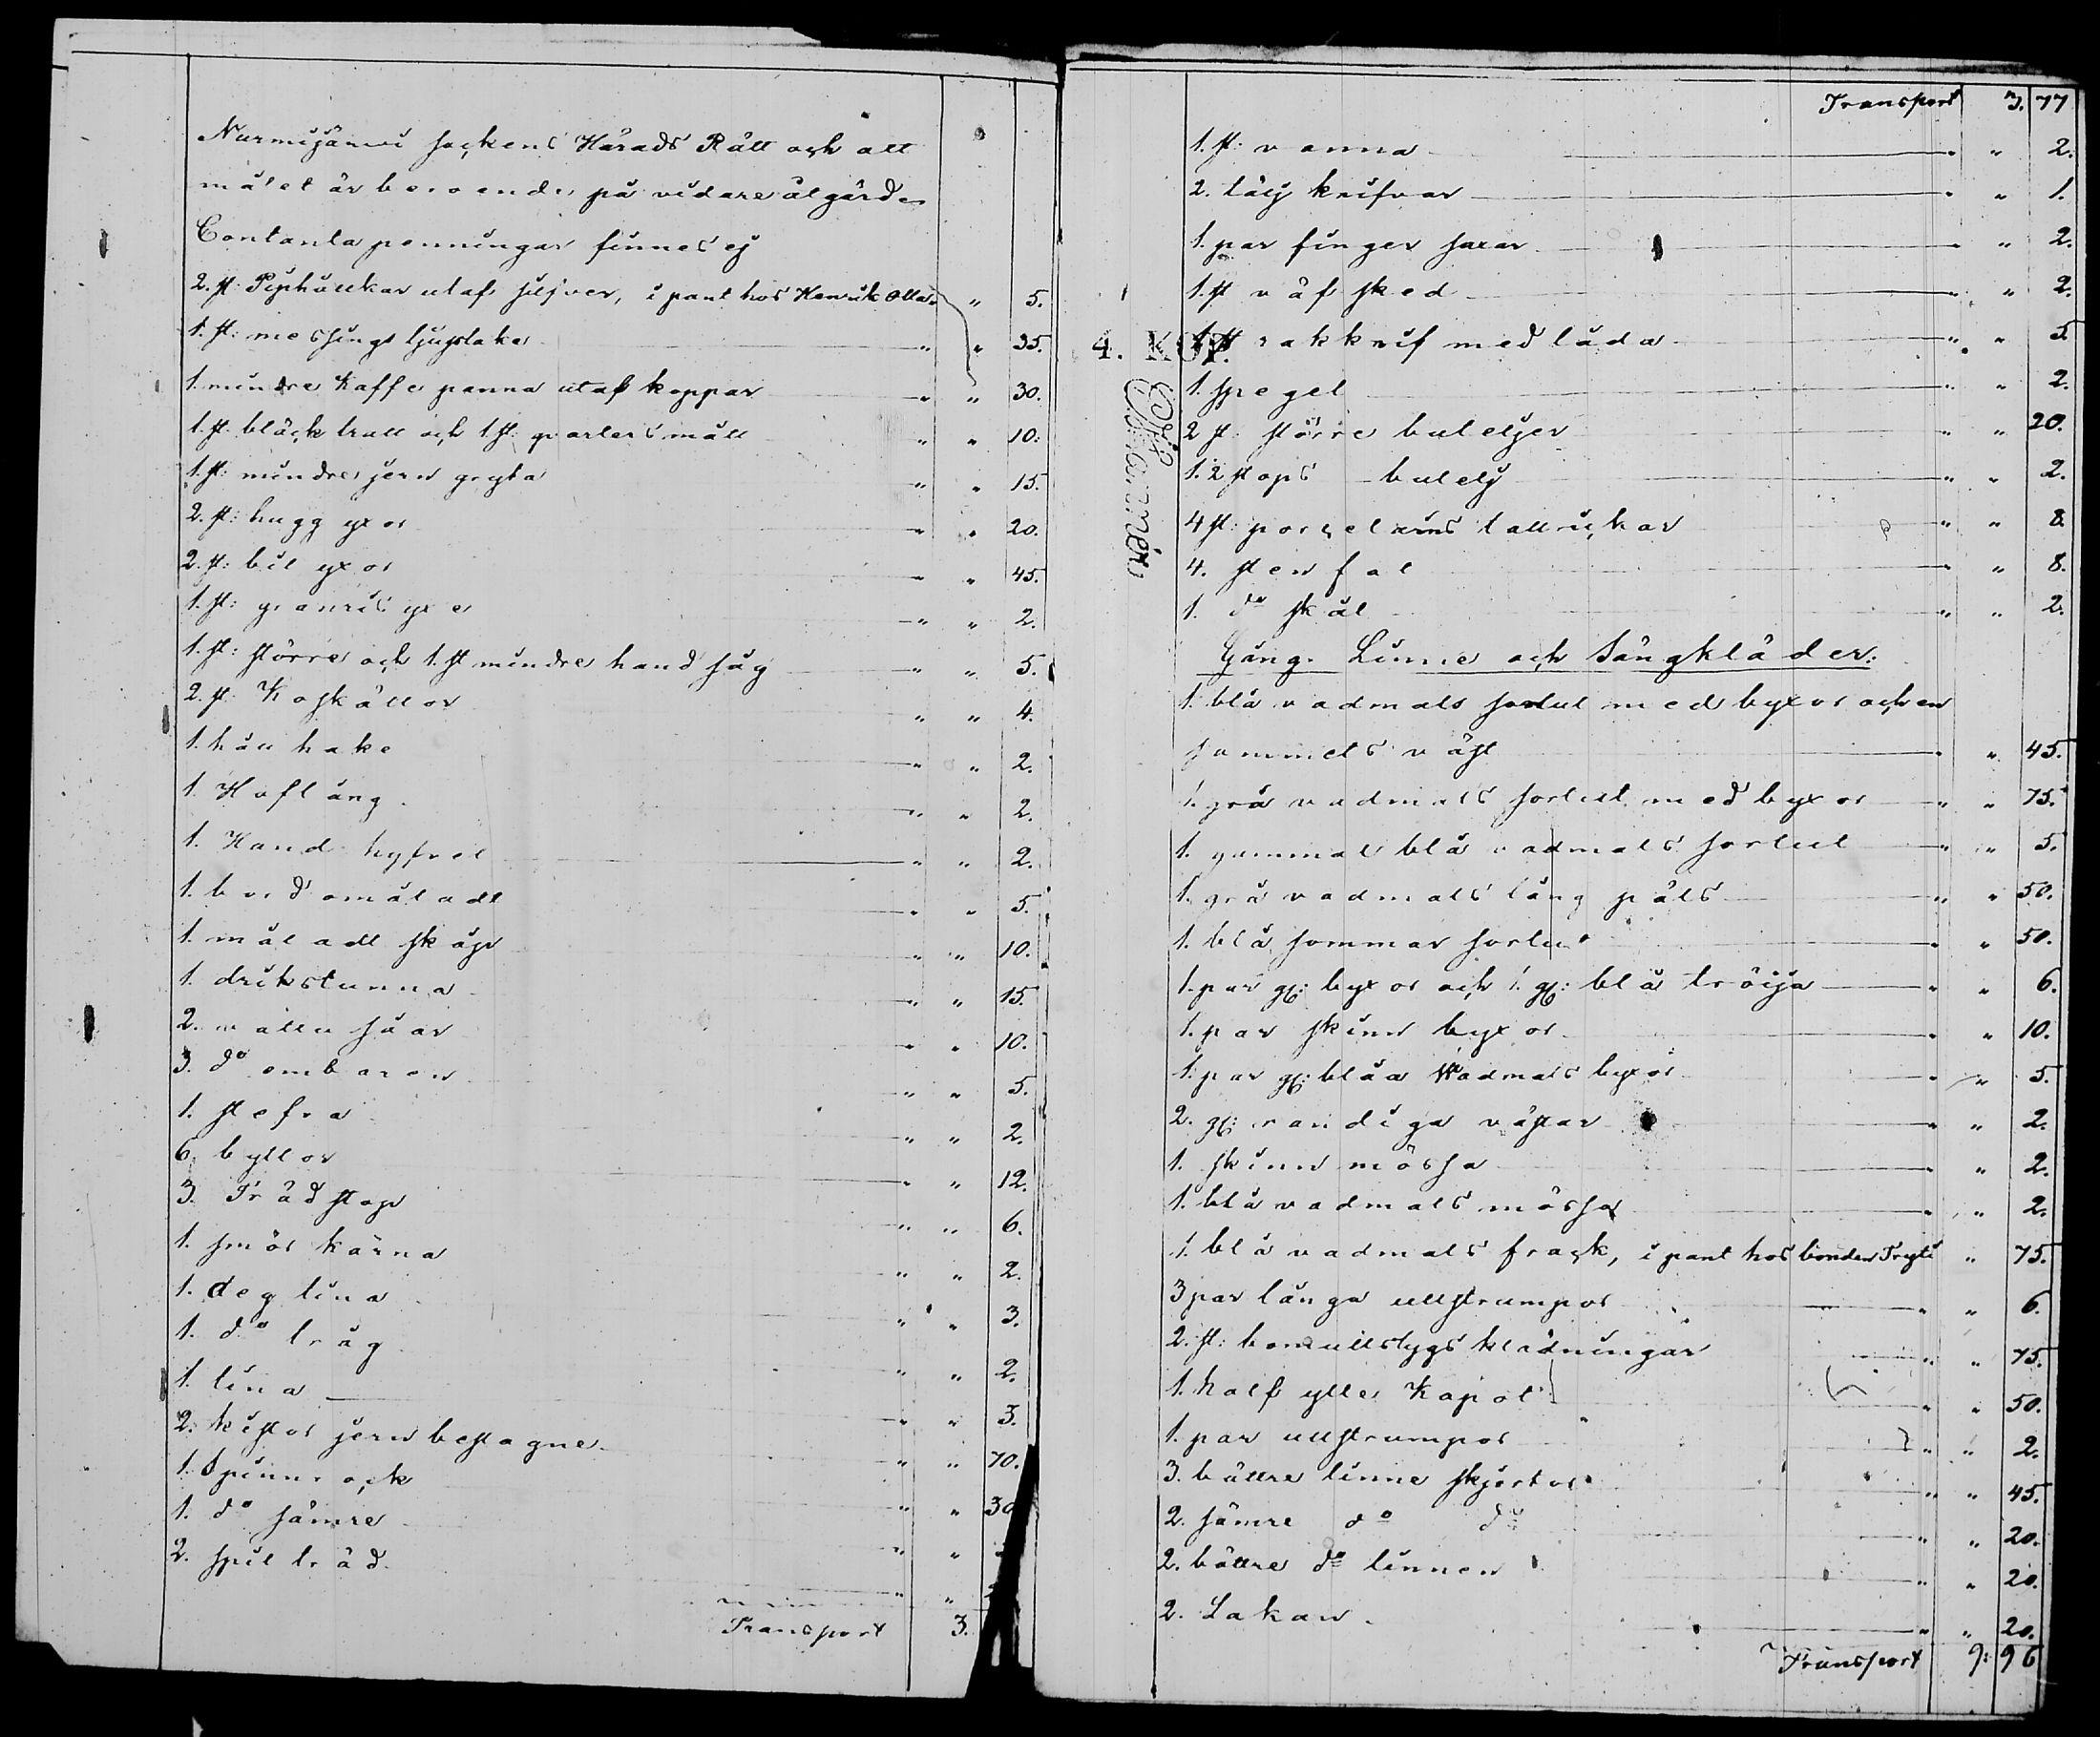 Nurmijärvi sockens Härads Rätt och att
målet är beroende på vidare åtgärder
Contanta penningar finnes ej
2. st: Piphäckar utaf silfver, i pant hos Henrik Otta " 5.
1. st: messings ljugstake " " 35.
1. mindre Kaffe panna utaf koppar " " 30.
1. st. bläck tratt och 1 st: qvarters mått " " 10.
1. st: mindre jern gryta " " 15.
2. st: hugg yxor " " 20.
2. st: bil yxor " " 45.
1. st: granris yxe " " 2.
1. st: större och 1. st mindre hand såg " " 5.
2. st Koskällor " " 4.
1. hö hake " " 2.
1. Hoftång " " 2.
1. Hand hyfvel " " 2.
1. bord omåladt " " 5.
1. måladt skåp " " 10.
1. drikstunna " " 15.
2. såar " " 10.
3. do embaren " " 5.
1. stefva " " 2.
6. byttor " " 12.
3. Träd stop " " 6.
1. smör kärna " " 2.
1. deg tina " " 3.
1. do tråg " " 2.
1. tina " " 3.
2. kistor jern beslagne " " 70.
1. Spinnrock " " 30
1. do sämre " "
2. spil träd " "
Transport 3.
Transport 3. 77
1. st: vanna " " 2.
2. tälj knifvar " " 1.
1. par finger saxar " " 2.
1. st väfsked " " 2.
4. KOP.
1 st rakknif med låda " " 5
1. spegel " " 2.
2 st. större buteljer " " 20.
1. 2 stops butelj " " 2.
4 st: porcelains tallrickar " " 8.
4. sten fat " " 8.
1. do skål " " 2.
Gång. Linne och Sängkläder:
1. blå vadmals sortut med byxor och en
sammets väst " " 45.
1. grå vadmals sortut med byxor " " 75.
1. gammal blå vadmals sortut " " 5.
1. grå vadmals lång päls " " 50.
1. blå sommar sortut " " 50.
1. par gl: byxor och 1. gl: blå tröija " " 6.
1. par skinn byxor " " 10.
1. par gl: blåa Wadmals byxor " " 5.
2. gl: randiga västar " " 2.
1. skinn mössa " " 2.
1. blå vadmals mössa " " 2.
1. blå vadmals frack, i pant hos bonden " 75.
3 par långa ullstrumpor " " 6.
2. st: bomullstygs klädningar " " 75.
1. half ylle Kapot " " 50.
1. par ullstrumpor " " 2.
3. bättre linne skjortor " " 45.
2. sämre do do " " 20.
2. bättre do linnen " " 20.
2. Lakan " " 20.
Transport 9: 96